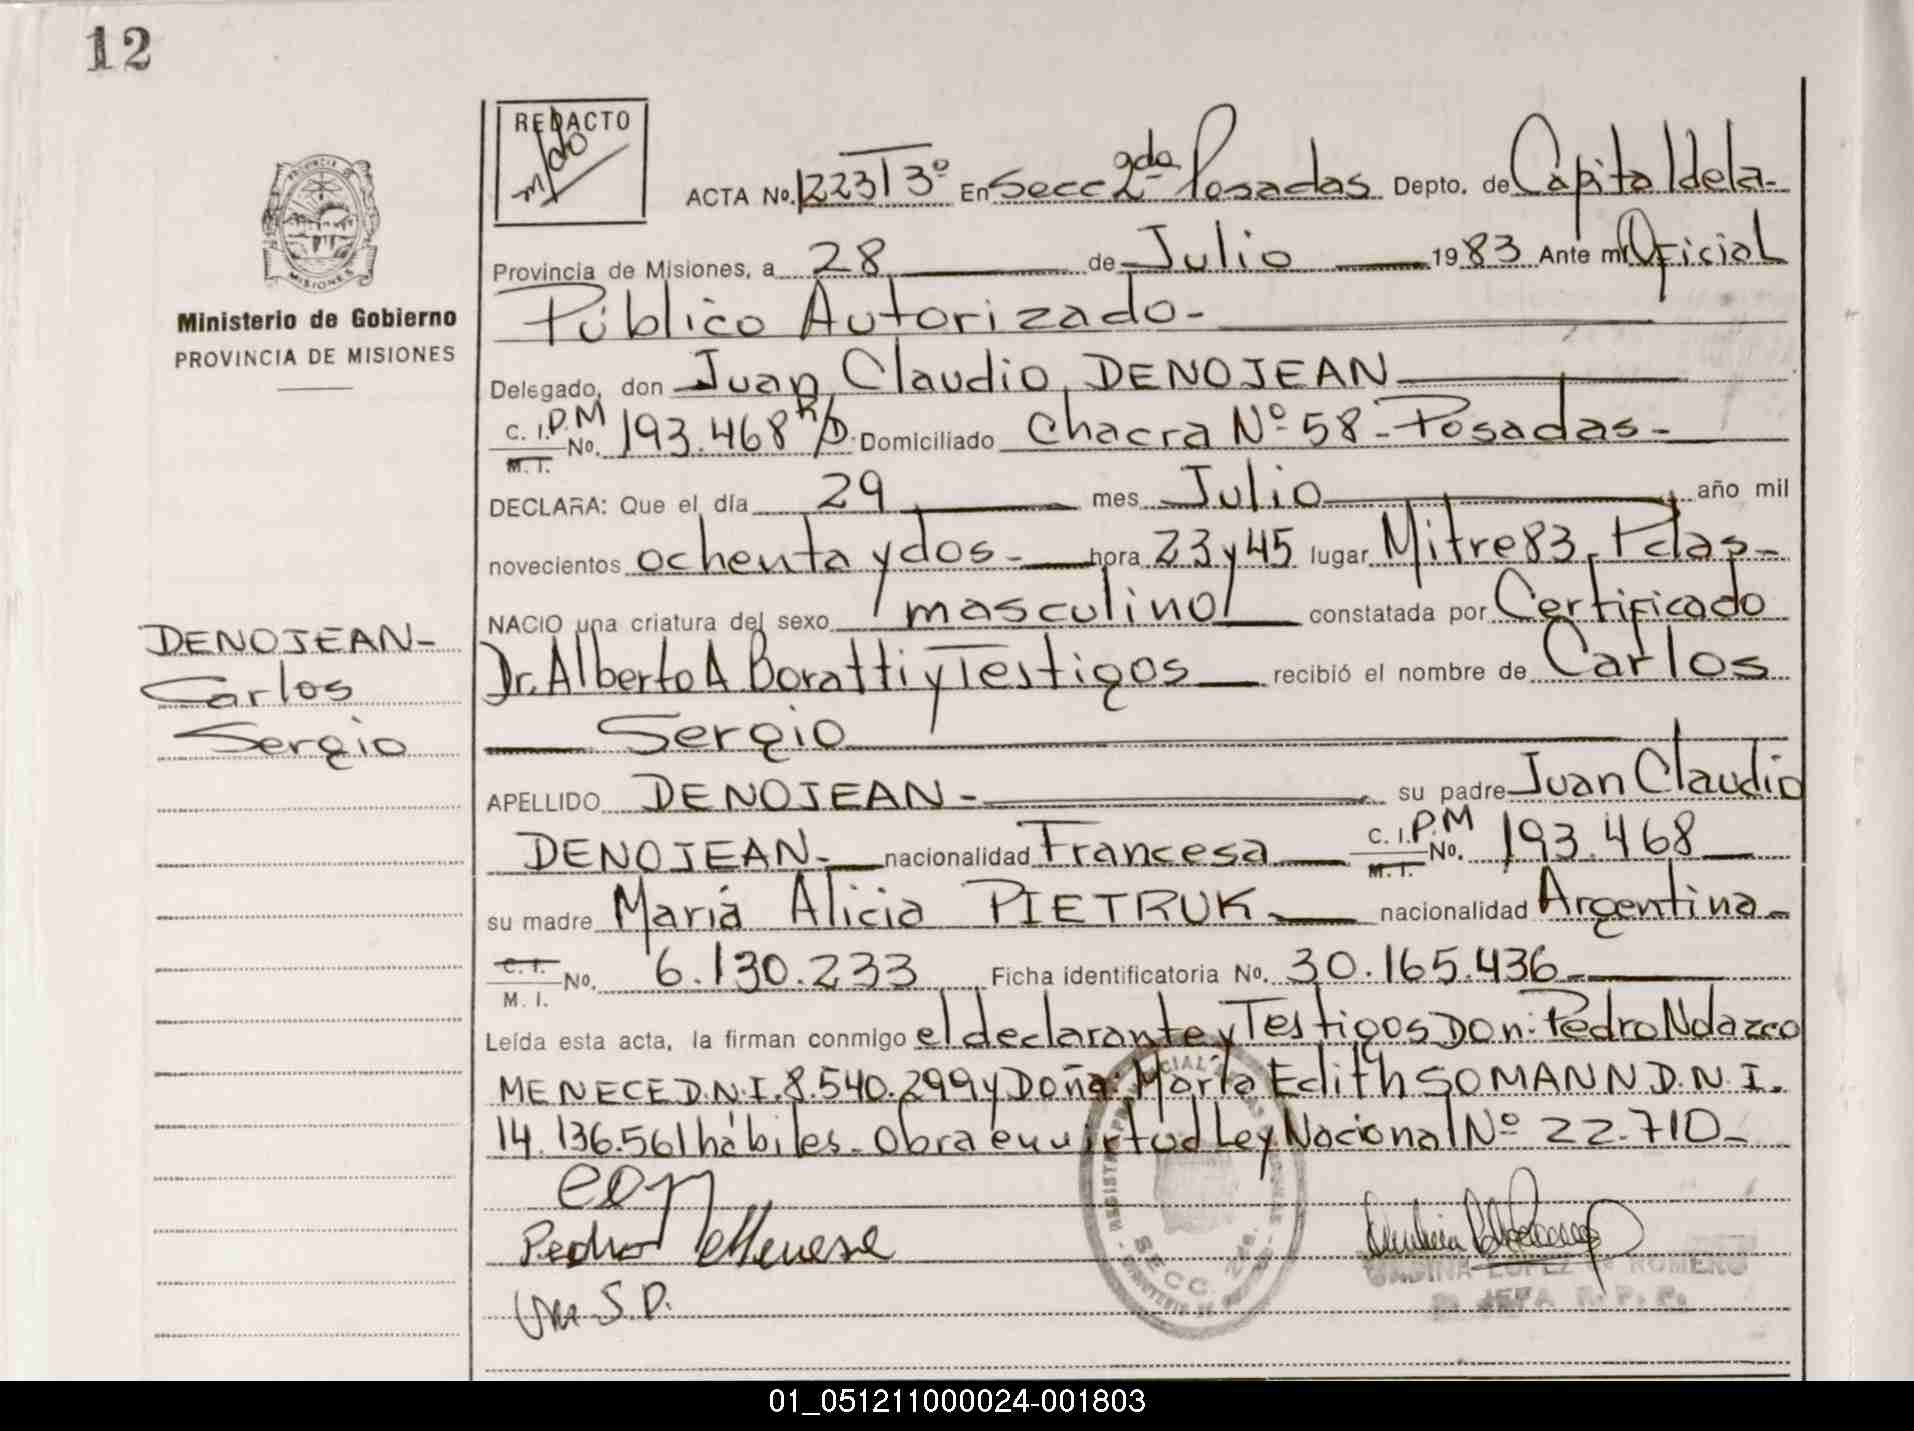 12
REDACTO
m/do
PROVINCIA
MISIONES
Ministerio de Gobierno
PROVINCIA DE MISIONES
ACTA No. 1223 T 3º En Secc 2da Posadas Depto. de Capital de la-
Provincia de Misiones, a 28 de Julio 1983 Ante mi Oficial
Público Autorizado-
Delegado, don Juan Claudio DENOJEAN
C. I. P.M
M. I. No. 193.468 Domiciliado Chacra Nº 58- Posadas-
DECLARA: Que el día 29 mes Julio año mil
novecientos ochenta y dos- hora 23 y 45 lugar Mitre 83, Pdas-
NACIO una criatura del sexo masculino constatada por Certificado
Dr. Alberto A Boratti y Testigos recibió el nombre de Carlos
Sergio
DENOJEAN-
Carlos
Sergio
APELLIDO DENOJEAN- su padre Juan Claudio
DENOJEAN- nacionalidad Francesa C. I. P.M
M. I. No. 193.468
su madre María Alicia PIETRUK nacionalidad Argentina-
C. I.
M. I. No. 6.130.233 Ficha identificatoria No. 30.165.436-
Leída esta acta, la firman conmigo el declarante y Testigos Don: Pedro
MENECE D.N.I. 8.540.299 y Doña: Marta Edith SOMANN D.N.I.
14.136.561 hábiles- Obra en virtud Ley Nacional Nº 22.710-
Pedro Menese
SECC. 2da.
LOPEZ de ROMERO
JEFA R. P. P.
01_051211000024-001803